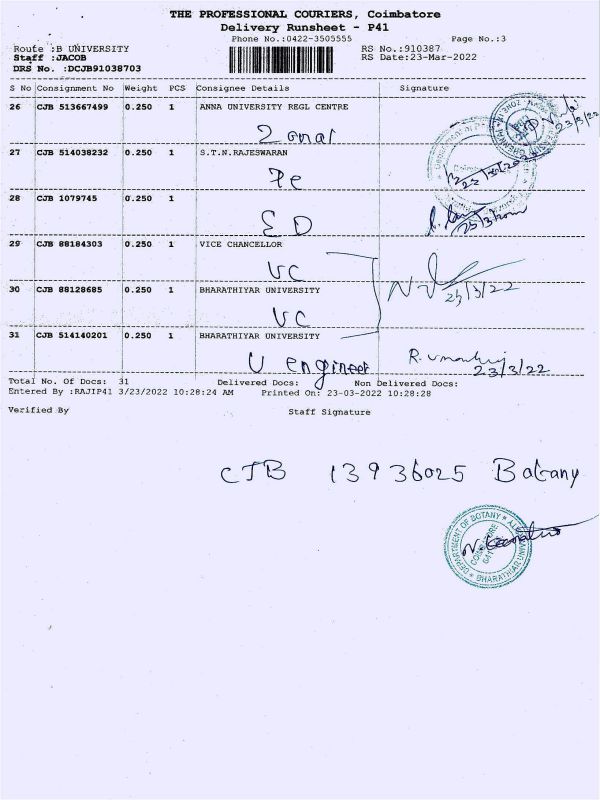 THE PROFESSIONAL COURIERS, Coimbatore
Delivery Runsheet - P41
Phone No.:0422-3505555 Page No.:3
Route :B UNIVERSITY RS No.:910387
Staff :JACOB RS Date:23-Mar-2022
DRS No. :DCJB91038703
S No Consignment No Weight PCS Consignee Details Signature
26 CJB 513667499 0.250 1 ANNA UNIVERSITY REGL CENTRE
Zonal
27 CJB 514038232 0.250 1 S.T.N.RAJESWARAN
Pe
28 CJB 1079745 0.250 1
ED
29 CJB 88184303 0.250 1 VICE CHANCELLOR
VC
30 CJB 88128685 0.250 1 BHARATHIYAR UNIVERSITY
23/3/22
VC
31 CJB 514140201 0.250 1 BHARATHIYAR UNIVERSITY
U engineer 23/3/22
Total No. Of Docs: 31 Delivered Docs: Non Delivered Docs:
Entered By :RAJIP41 3/23/2022 10:28:24 AM Printed On: 23-03-2022 10:28:28
Verified By Staff Signature
CJB 13936025 Botany
DEPARTMENT OF BOTANY
COIMBATORE
BHARATHIAR